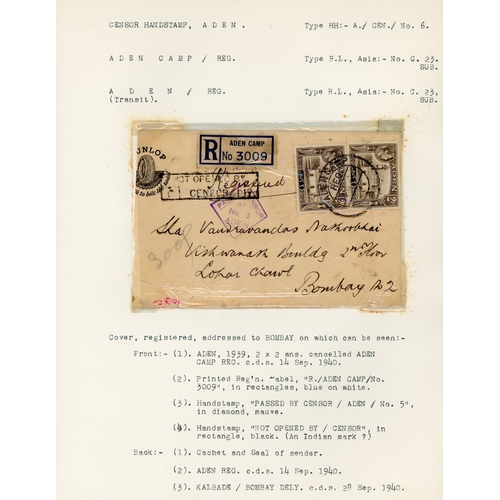 CENSOR HANDSTAMP, ADEN. Type HH:- A./ CEN./ No. 6.
ADEN CAMP / REG. Type R.L., Asia:- No. C. 23. SUB.
ADEN / REG. Type R.L., Asia:- No. C. 23, SUB.
(Transit).
DUNLOP
R ADEN CAMP
No 3009
NOT OPENED BY
CENSOR
Registered
No. 3
ADEN
ADEN
3009
Sha Vandravandas Nathoobhai
Vishwanath Building 2nd Floor
Lohar Chawl
Bombay No 2
Cover, registered, addressed to BOMBAY on which can be seen:-
Front:- (1). ADEN, 1939, 2 x 2 ans. cancelled ADEN
CAMP REG. c.d.s. 14 Sep. 1940.
(2). Printed Reg'n. label, "R./ADEN CAMP/No.
3009", in rectangles, blue on white.
(3). Handstamp, "PASSED BY CENSOR / ADEN / No. 5",
in diamond, mauve.
(4). Handstamp, "NOT OPENED BY / CENSOR", in
rectangle, black. (An Indian mark ?)
Back:- (1). Cachet and Seal of sender.
(2). ADEN REG. c.d.s. 14 Sep. 1940.
(3). KALBADE / BOMBAY DELY. c.d.s. 28 Sep. 1940.